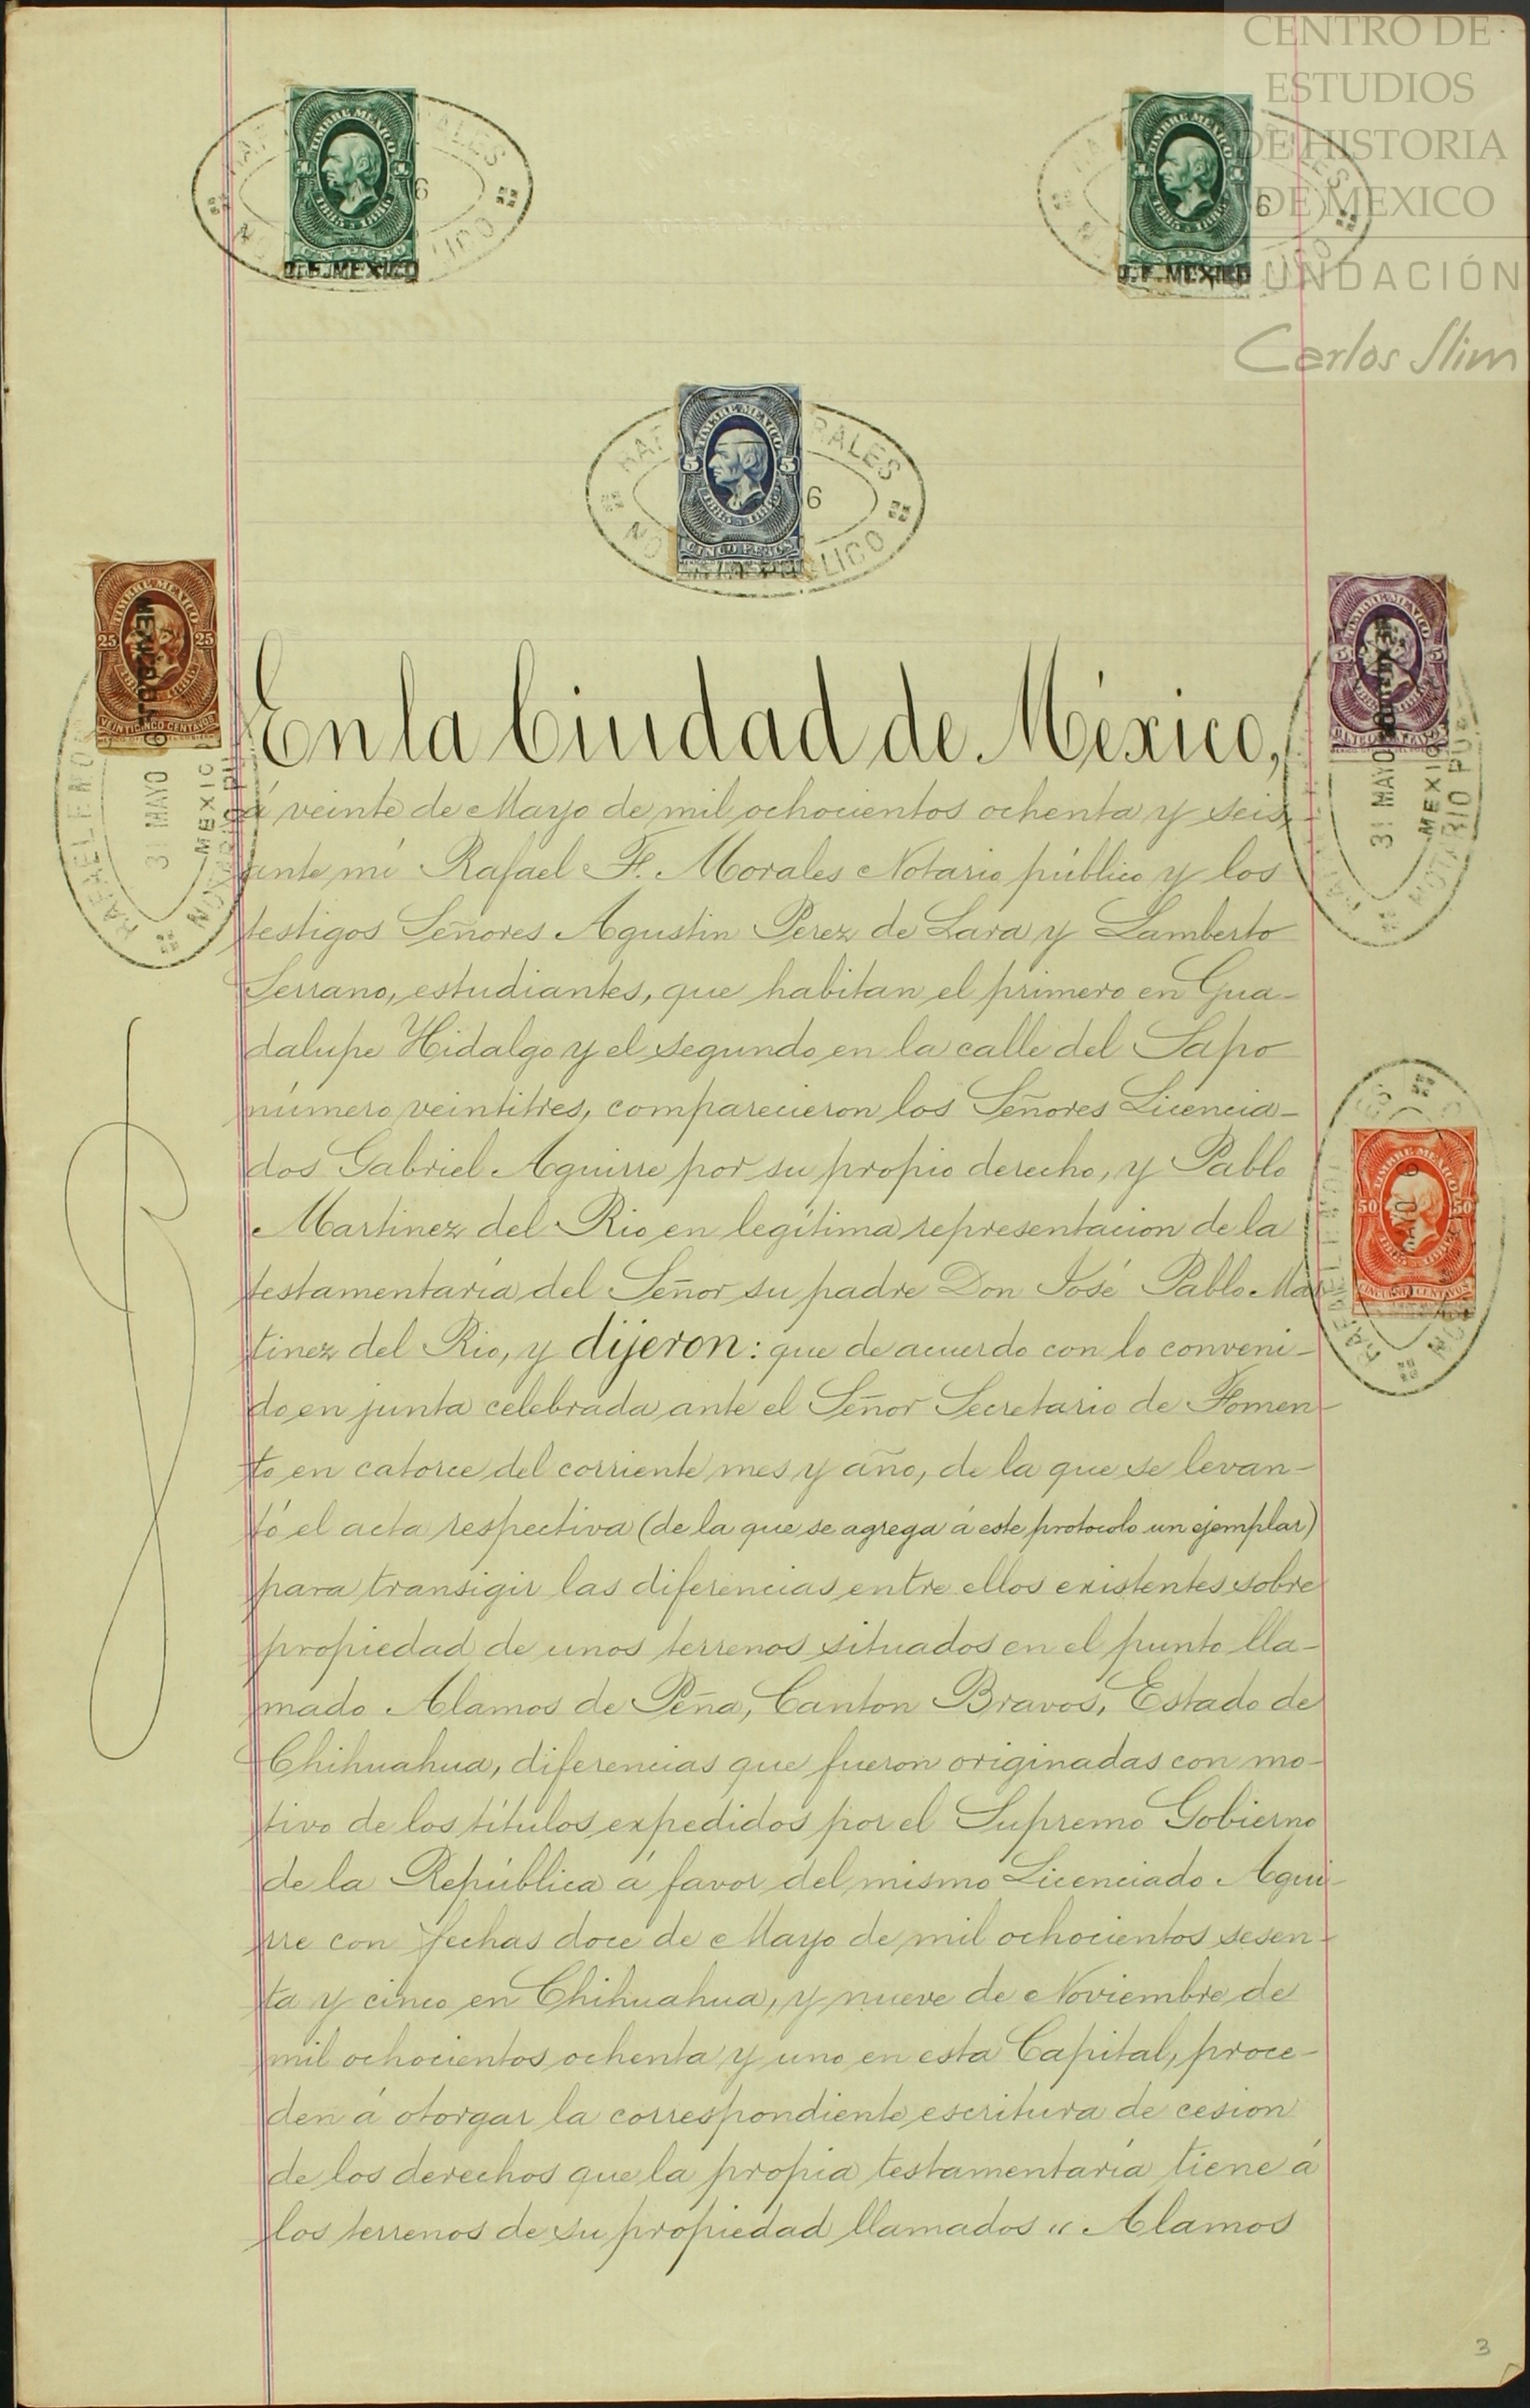 CENTRO DE
ESTUDIOS
DE HISTORIA
DE MEXICO
FUNDACIÓN
Carlos Slim
TIMBRE MEXICO
D.F. MEXICO
6
TIMBRE MEXICO
D.F. MEXICO
6
RALES
TIMBRE MEXICO
5 5
CINCO PESOS
6
TIMBRE MEXICO
25 25
VEINTICINCO CENTAVOS
31 MAYO
RAFAEL F. MO
TIMBRE MEXICO
31 MAYO
MEXIC
NOTARIO PUB
En la Ciudad de México,
á veinte de Mayo de mil ochocientos ochenta y seis,
ante mí Rafael F. Morales Notario público y los
testigos Señores Agustin Perez de Lara y Lamberto
Serrano, estudiantes, que habitan el primero en Gua-
dalupe Hidalgo y el segundo en la calle del Sapo
número veintitres, comparecieron los Señores Licencia-
dos Gabriel Aguirre por su propio derecho, y Pablo
Martinez del Rio en legítima representacion de la
testamentaría del Señor su padre Don José Pablo Mar
tinez del Rio, y dijeron: que de acuerdo con lo conveni-
do en junta celebrada ante el Señor Secretario de Fomen-
to en catorce del corriente mes y año, de la que se levan-
tó el acta respectiva (de la que se agrega á este protocolo un ejemplar)
para transigir las diferencias entre ellos existentes sobre
propiedad de unos terrenos situados en el punto lla-
mado Alamos de Peña, Canton Bravos, Estado de
Chihuahua, diferencias que fueron originadas con mo-
tivo de los títulos expedidos por el Supremo Gobierno
de la República á favor del mismo Licenciado Agui-
rre con fechas doce de Mayo de mil ochocientos sesen-
ta y cinco en Chihuahua, y nueve de Noviembre de
mil ochocientos ochenta y uno en esta Capital, proce-
den á otorgar la correspondiente escritura de cesion
de los derechos que la propia testamentaría tiene á
los terrenos de su propiedad llamados "Alamos
TIMBRE MEXICO
50 50
CINCUENTA CENTAVOS
3